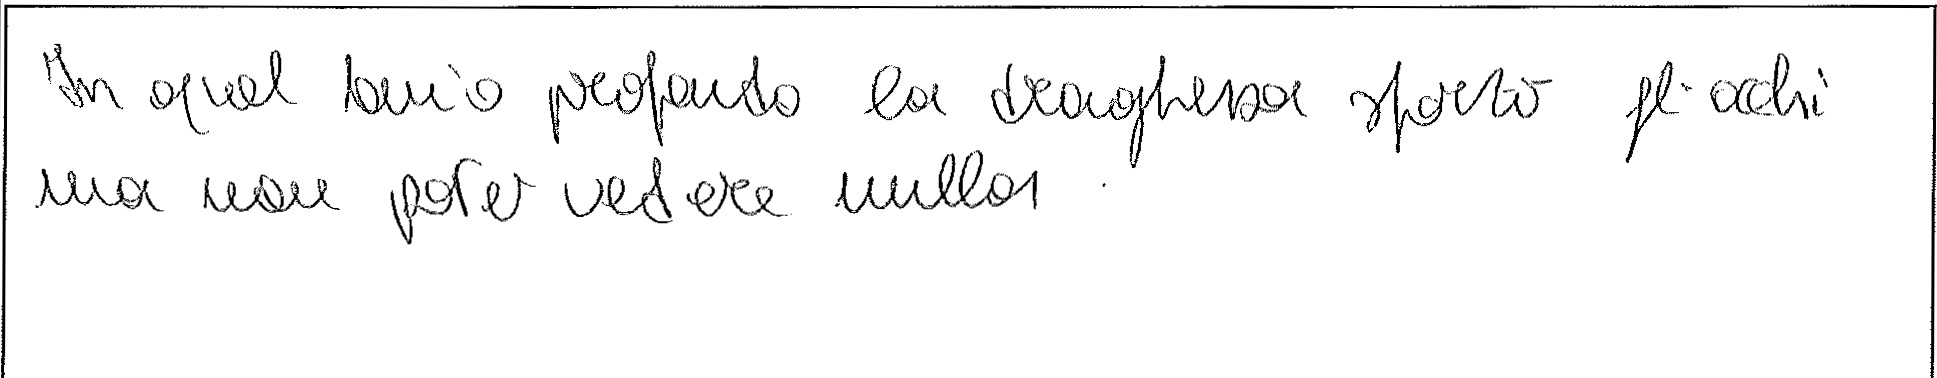 In quel buio profondo la draghessa spostò gli occhi
ma non potev vedere nulla.